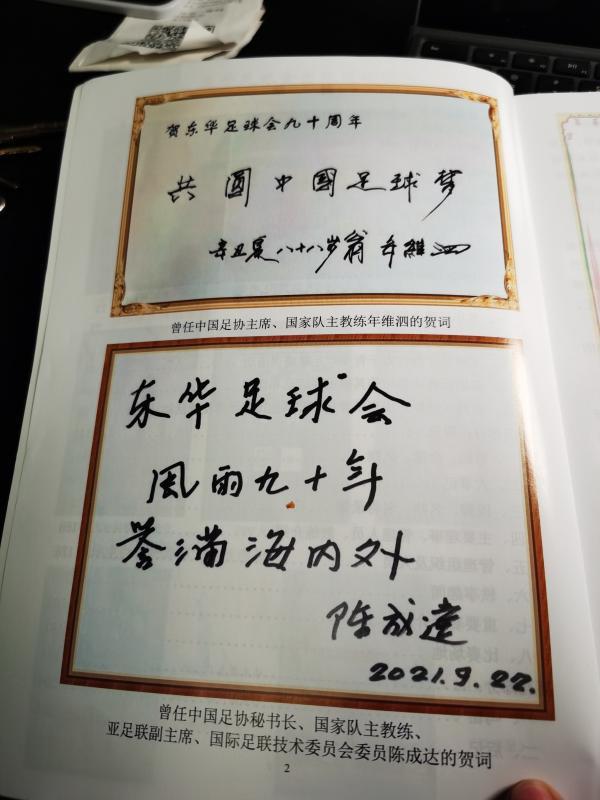 贺东华足球会九十周年
共圆中國足球梦
辛丑夏八十八岁翁 年維泗
曾任中国足协主席、国家队主教练年维泗的贺词
东华足球会
風雨九十年
誉满海内外
陈成達
2021.9.22.
曾任中国足协秘书长、国家队主教练、
亚足联副主席、国际足联技术委员会委员陈成达的贺词
2